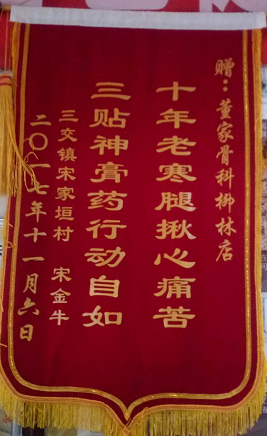 赠：董家骨科柳林店
十年老寒腿揪心痛苦
三贴神膏药行动自如
三交镇宋家垣村 宋金牛
二〇一七年十一月六日